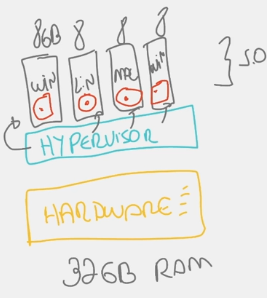 8GB 8 8 8
WIN LIN MAC WIN
} S.O
HYPERVISOR
HARDWARE
32GB RAM